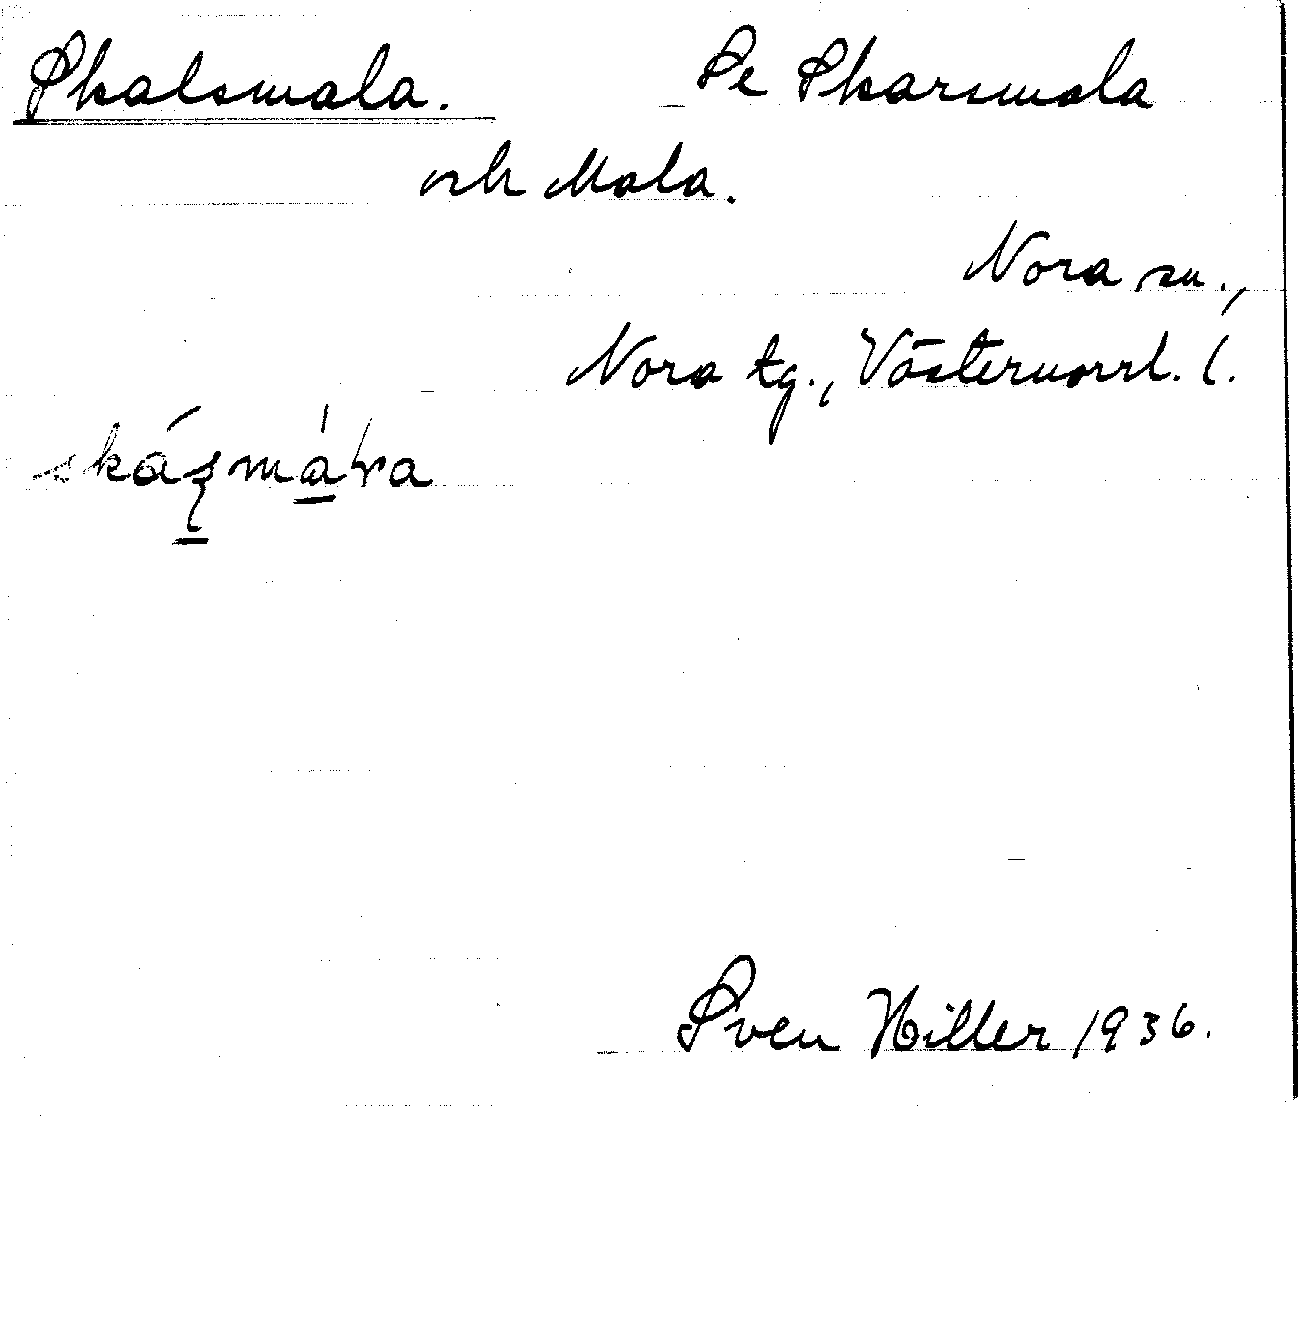 Skalsmala. Se Skarsmala
och Mala.
Nora sn.,
Nora tg., Västernorrl. l.
Sven Hiller 1936.